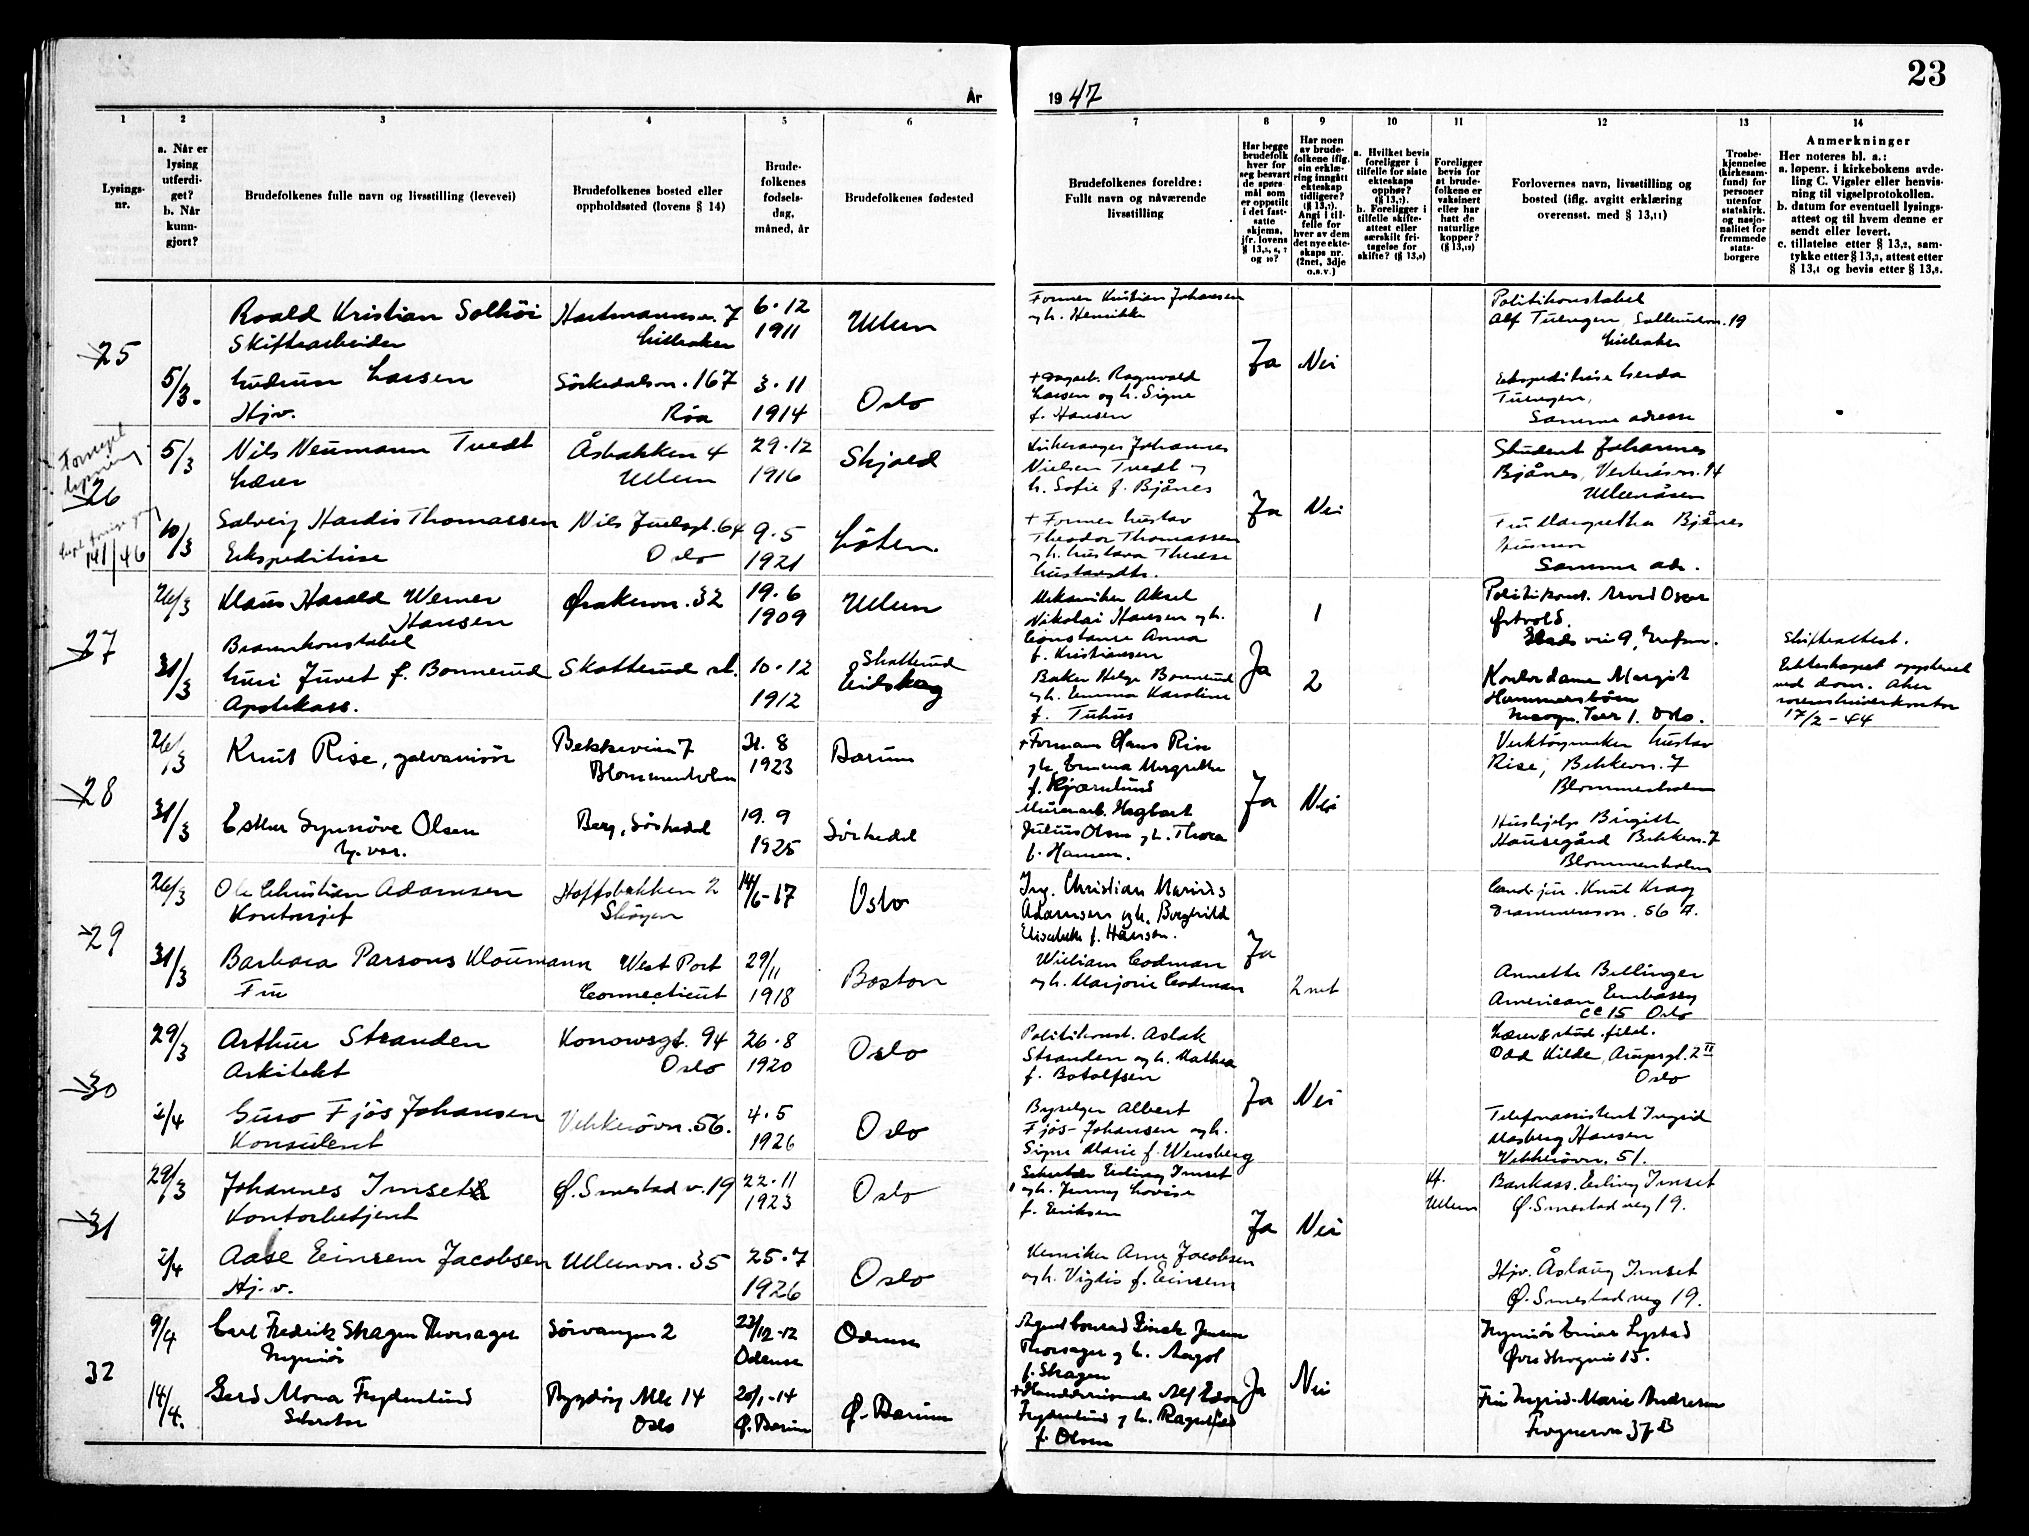 23
År
19 47
1
2
3
4
5
6
7
8
9
10
11
12
13
14
Lysings-
nr.
a. Når er
lysing
utferdi-
get?
b. Når
kunn-
gjort?
Brudefolkenes fulle navn og livsstilling (levevei)
Brudefolkenes bosted eller
oppholdssted (lovens § 14)
Brude-
folkenes
fødsels-
dag,
måned, år
Brudefolkenes fødested
Brudefolkenes foreldre:
Fullt navn og nåværende
livsstilling
Har begge
brudefolk
hver for
seg besvart
de spørs-
mål som
er oppstilt
i det fast-
satte
skjema,
jfr. lovens
§ 13,5, 6, 7
og 10?
Har noen
av brude-
folkene iflg.
sin erklæ-
ring inngått
ekteskap
tidligere?
(§ 13,7).
Angi i til-
felle for
hver av dem
det nye ekte-
skaps nr.
(2net, 3dje
o.s.v.)
a. Hvilket bevis
foreligger i
tilfelle for siste
ekteskaps
opphør?
(§ 13,7).
b. Foreligger i
tilfelle skifte-
attest eller
særskilt fri-
tagelse for
skifte? (§ 13,8)
Foreligger
bevis for
at brude-
folkene er
vaksinert
eller har
hatt de
naturlige
kopper?
(§ 13,12)
Forlovernes navn, livsstilling og
bosted (iflg. avgitt erklæring
overensst. med § 13,11)
Trosbe-
kjennelse
(kirkesam-
fund) for
personer
utenfor
statskirk.
og nasjo-
nalitet for
fremmede
stats-
borgere
Anmerkninger
Her noteres bl. a.:
a. løpenr. i kirkebokens avde-
ling C. Vigsler eller henvis-
ning til vigselprotokollen.
b. datum for eventuell lysings-
attest og til hvem denne er
sendt eller levert.
c. tillatelse etter § 13,2, sam-
tykke etter § 13,3, attest etter
§ 13,4 og bevis etter § 13,8.
25
5/3.
Roald Kristian Solhöi
Skiftearbeider
Hartmannsv. 7
Lilleaker
6·12
1911
Ullern
Former Kristian Johansen
og h. Henrikke
Ja
Nei
Politikonstabel
Alf Tuengen, Sollerudv. 19
Lilleaker
Gudrun Larsen
Hjv.
Sörkedalsv. 167
Röa
3·11
1914
Oslo
+ Dagarb. Ragnvald
Larsen og h. Signe
f. Hansen
Ekspeditrise Gerda
Tuengen,
Samme adresse
Fornyet
lysning
26
141/46
5/3
Nils Neumann Tvedt
Lærer
Åsbakken 4
Ullern
29·12
1916
Skjold
Kirkesanger Johannes
Nielsen Tvedt og
h. Sofie f. Bjånes
Ja
Nei
Student Johannes
Bjånes, Vesteråsvn. 14
Ullernåsen
10/3
Solveig Hardis Thomassen
Ekspeditrise
Nils Juelsgt. 64
Oslo
9·5
1921
Löten.
+ Former Gustav
Theodor Thomassen
og h. Gustava Therese
Gustavsdtr.
Fru Margrethe Bjånes
Husmor
Samme adr.
27
26/3
Klaus Harald Werner
Hansen
Brannkonstabel
Ørakervn. 32
19·6
1909
Ullern
Mekaniker Aksel
Nikolai Hansen og h.
Constance Anna
f. Kristiansen
1
Ja
Politikonst. Arvid Oscar
Østvold.
31/3
Guri Juvet f. Bonnerud
Apotekass.
Skotterud st.
10·12
1912
Skotterud
Eidskog
Baker Helge Bonnerud
og h. Emma Karoline
f. Tuhus
2
Kontordame Margit
Hammerstöen
Skifteattest.
Ekteskapet opplöst
ved dom. Aker
sorenskriverkontor
17/2-44
28
26/3
Knut Rise, galvanisör
Bekkeveien 7
Blommenholm
31·8
1923
Bærum
+ Formann Hans Rise
og h. Emma Margrethe
f. Kjærnlund
Ja
Nei
Verktöymaker Gustav
Rise, Bekkevn. 7
Blommenholm
31/3
Esther Synnöve Olsen
Berg, Sörkedal
19·9
1925
Sörkedal
Murerarb. Hagbart
Julius Olsen og h. Thora
f. Hansen.
Hushjelp Birgitte
Haugegård Bekkevn. 7
Blommenholm
29
26/3
Ole Christian Adamsen
Kontorsjef
Hoffsbakken 2
Sköyen
14/6-17
Oslo
Ing. Christian Marius
Adamsen og h. Borghild
Elisabeth f. Hansen.
Ja
Cand. jur. Knut Krag
Drammensvn. 56 A.
31/3
Barbara Parsons Kloumann
Fru
West Port
Connecticut
29/11
1918
Boston
William Codman
og h. Marjorie Codman
2net
Annette Bellinger
American Embassy
Oslo
30
29/3
Arthur Stranden
Arkitekt
Konowsgt. 94
Oslo
26·8
1920
Oslo
Politikonst. Aslak
Stranden og h. Mathea
f. Botolfsen
Ja
Nei
Lærer & stud. filol.
Odd Kilde, Arupsgt. 2 II
Oslo
2/4
Guro Fjös Johansen
Konsulent
Vekkerövn. 56.
4·5
1926
Oslo
Byselger Albert
Fjös-Johansen og h.
Signe Marie f. Wensberg
Telefonassistent Ingrid
Masberg Hansen
Vekkerövn. 51.
31
29/3
Johannes Imset
Kontorbetjent
Ø. Smestad v. 19
22·11
1923
Oslo
Erling Imset
og h. Jenny Lovise
f. Eriksen
Ja
Nei
H.
Ullern
Bankass. Erling Imset
Ø. Smestad veg 19.
2/4
Aase Einsem Jacobsen
Hj.v.
Ullernvn. 35
25·7
1926
Oslo
Kemiker Arne Jacobsen
og h. Vigdis f. Einsem
Hjv. Åslaug Imset
Ø. Smestad veg 19.
32
9/4
Carl Fredrik Skagen Thorsager
Ingeniör
Sörvangen 2
23/12-12
Odense
Odense
Agent Conrad Jensen
Thorsager og h. Aagot
f. Skagen
Ja
Nei
Ingeniör Einar Lystad
15.
14/4.
Gerd Mona Frydenlund
Sekretær
Bygdöy Allé 14
Oslo
20/1-14
Ø. Bærum
Ø. Bærum
+ Handelsreisende Alf
Frydenlund og h. Ragnhild
f. Olsen
Fru Ingrid-Marie Andresen
Frognervn 37 B